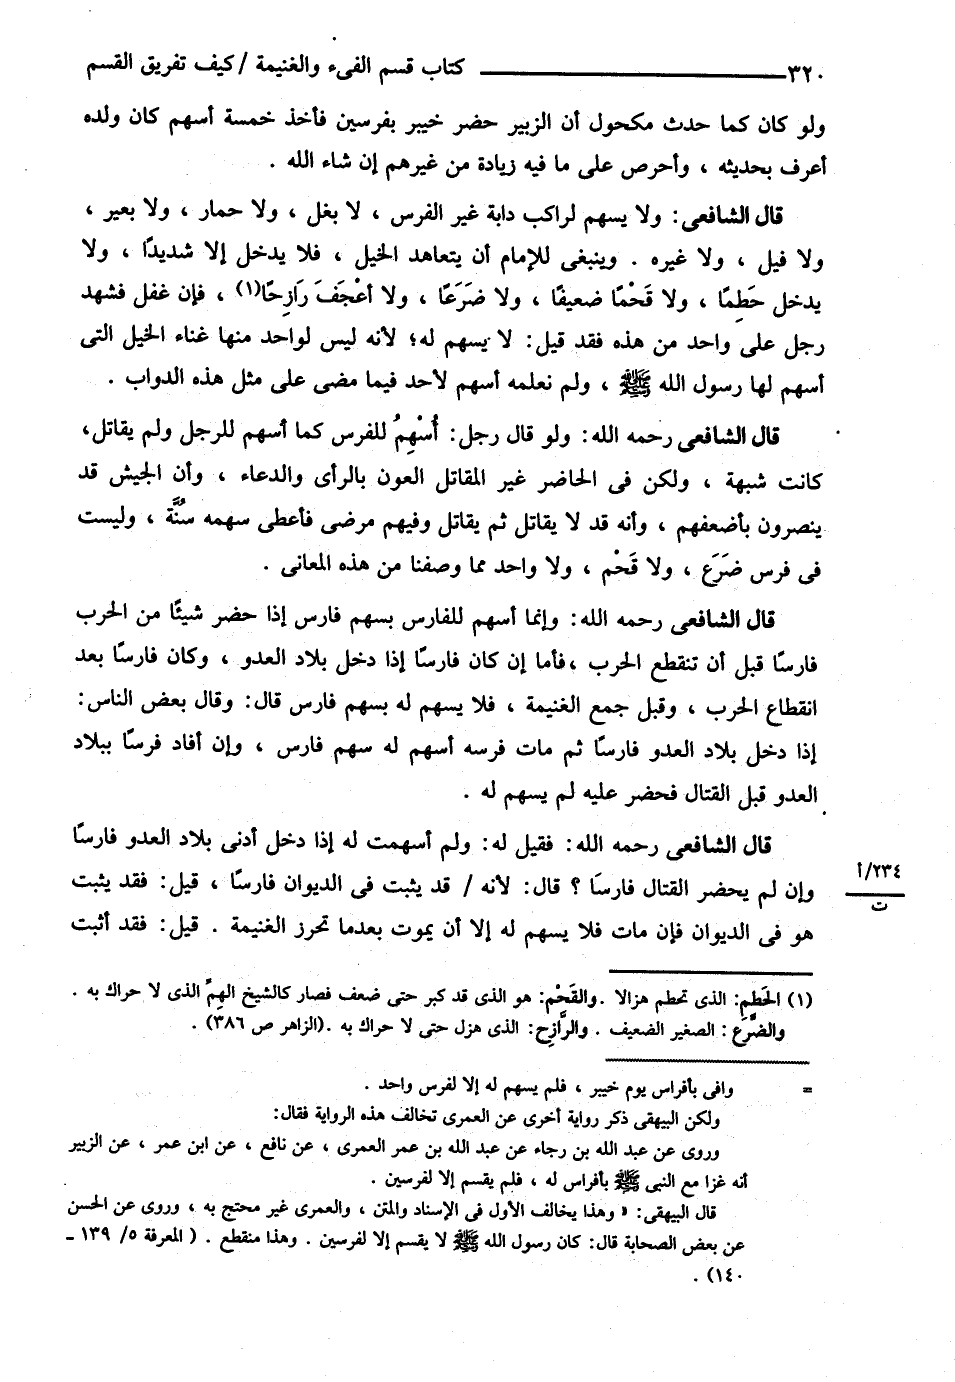 ٣٢٠ ــــــــــــــــــ كتاب قسم الفىء والغنيمة / كيف تفريق القسم
ولو كان كما حدث مكحول أن الزبير حضر خيبر بفرسين فأخذ خمسة أسهم كان ولده
أعرف بحديثه ، وأحرص على ما فيه زيادة من غيرهم إن شاء الله .
قال الشافعى: ولا يسهم لراكب دابة غير الفرس ، لا بغل ، ولا حمار ، ولا بعير ،
ولا فيل ، ولا غيره . وينبغى للإمام أن يتعاهد الخيل ، فلا يدخل إلا شديدًا ، ولا
يدخل حَطِمًا ، ولا قَحْمًا ضعيفًا ، ولا ضَرَعًا ، ولا أعْجَفَ رَازِحًا(١) ، فإن غفل فشهد
رجل على واحد من هذه فقد قيل: لا يسهم له؛ لأنه ليس لواحد منها غناء الخيل التى
أسهم لها رسول الله ﷺ ، ولم نعلمه أسهم لأحد فيما مضى على مثل هذه الدواب .
قال الشافعى رحمه الله: ولو قال رجل: أُسْهِمُ للفرس كما أسهم للرجل ولم يقاتل،
كانت شبهة ، ولكن فى الحاضر غير المقاتل العون بالرأى والدعاء ، وأن الجيش قد
ينصرون بأضعفهم ، وأنه قد لا يقاتل ثم يقاتل وفيهم مرضى فأعطى سهمه سُنَّة ، وليست
فى فرس ضَرَع ، ولا قَحْم ، ولا واحد مما وصفنا من هذه المعانى .
قال الشافعى رحمه الله: وإنما أسهم للفارس بسهم فارس إذا حضر شيئًا من الحرب
فارسًا قبل أن تنقطع الحرب ،فأما إن كان فارسًا إذا دخل بلاد العدو ، وكان فارسًا بعد
انقطاع الحرب ، وقبل جمع الغنيمة ، فلا يسهم له بسهم فارس قال: وقال بعض الناس:
إذا دخل بلاد العدو فارسًا ثم مات فرسه أسهم له سهم فارس ، وإن أفاد فرسًا ببلاد
العدو قبل القتال فحضر عليه لم يسهم له .
قال الشافعى رحمه الله: فقيل له: ولم أسهمت له إذا دخل أدنى بلاد العدو فارسًا
وإن لم يحضر القتال فارسًا ؟ قال: لأنه / قد يثبت فى الديوان فارسًا ، قيل: فقد يثبت
٢٣٤/أ
ت
هو فى الديوان فإن مات فلا يسهم له إلا أن يموت بعدما تحرز الغنيمة . قيل: فقد أثبت
(١) الحَطِم: الذى تحطم هزالا .والقَحْم: هو الذى قد كبر حتى ضعف فصار كالشيخ الهِمِّ الذى لا حراك به .
والضَّرَع : الصغير الضعيف . والرَّازِح: الذى هزل حتى لا حراك به .(الزاهر ص ٣٨٦) .
= وافى بأفراس يوم خيبر ، فلم يسهم له إلا لفرس واحد .
ولكن البيهقى ذكر رواية أخرى عن العمرى تخالف هذه الرواية فقال:
وروى عن عبد الله بن رجاء عن عبد الله بن عمر العمرى ، عن نافع ، عن ابن عمر ، عن الزبير
أنه غزا مع النبى ﷺ بأفراس له ، فلم يقسم إلا لفرسين .
قال البيهقى: « وهذا يخالف الأول فى الإسناد والمتن ، والعمرى غير محتج به ، وروى عن الحسن
عن بعض الصحابة قال: كان رسول الله ﷺ لا يقسم إلا لفرسين . وهذا منقطع . ( المعرفة ٥/ ١٣٩ ـ
١٤٠) .